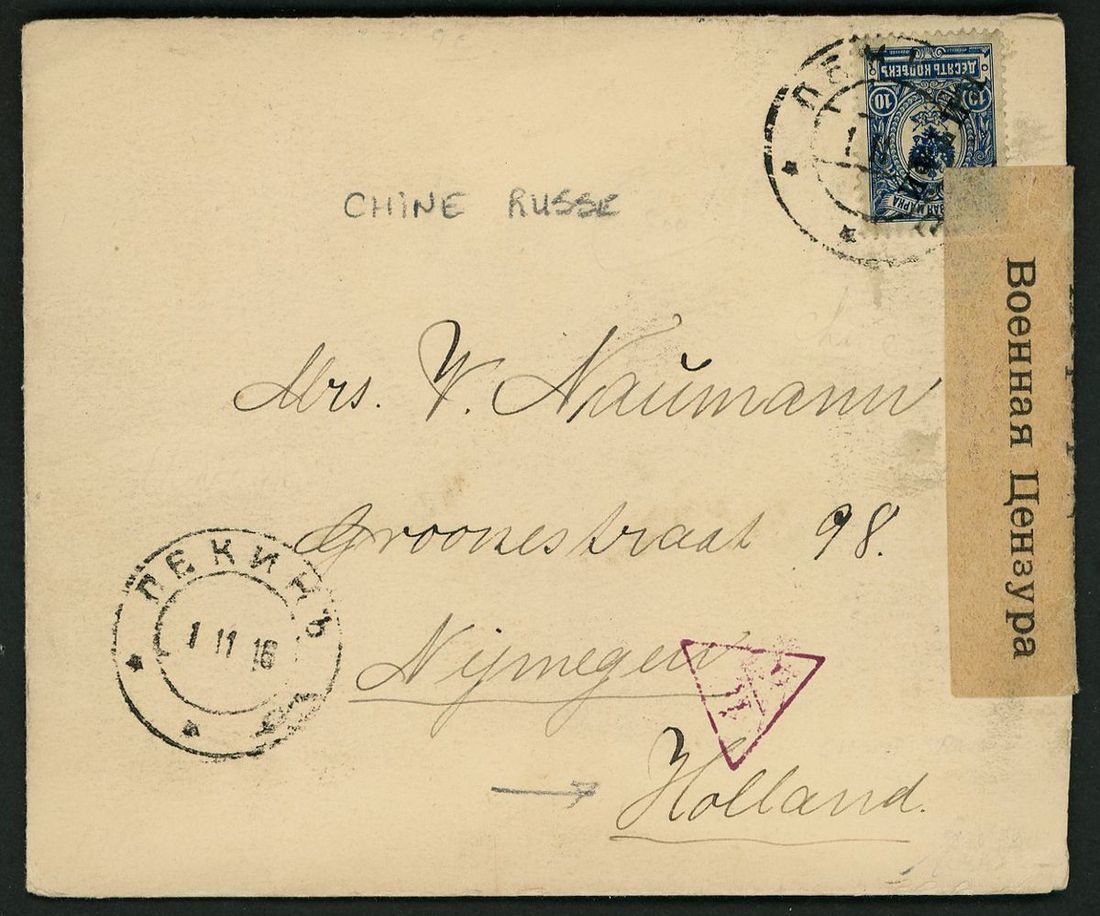 ДЕСЯТЬ КОПѢЕКЪ
10 10
КИТАЙ
CHINE RUSSE
Военная Цензура
Mrs. W. Naumann
Groonestraat 98.
Nijmegen
Holland.
ПЕКИНЪ
1 11 16